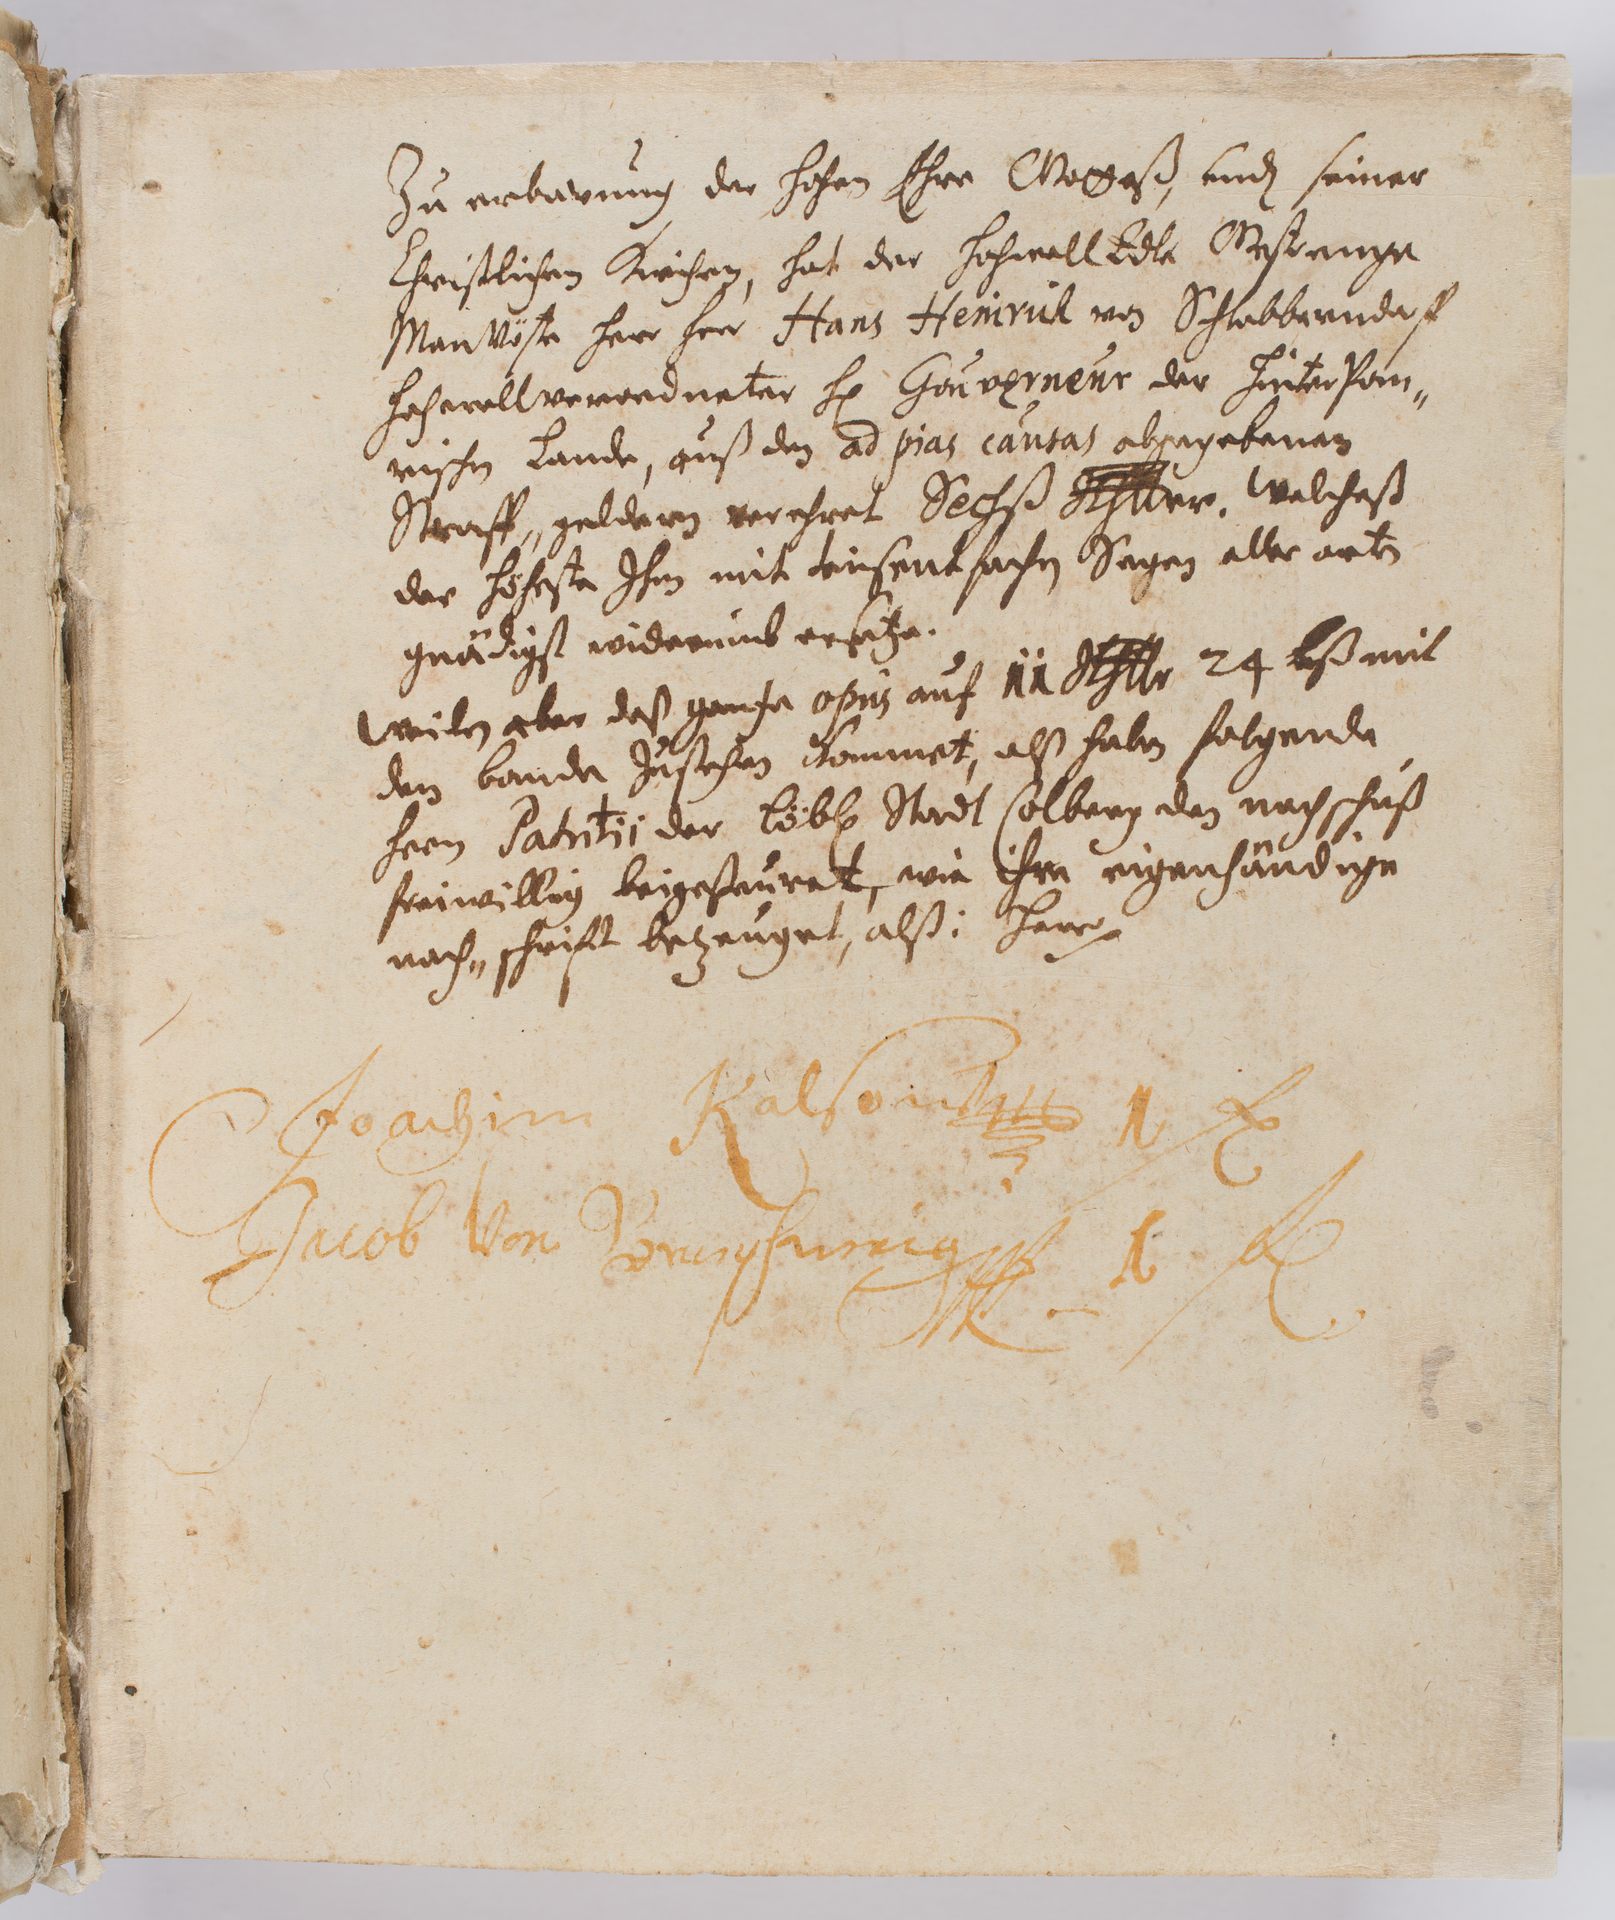 Zu erbawung der hohen Ehre Gottes, undt seiner
Christlichen Kirchen, hat der hochwoll Edle Gestrenge
Manvöste Herr Herr Hans Heinrich von Schlabberndorff
hochwollverordneter H. Gouverneur der HinterPom„
rischn Lande, auß den ad pias causas abgegebenen
Straff„geldern verehret Sechß Rthler. welcheß
der höheste Ihm mit tausentfachn Segen aller artn
gnädigst widerumb ersetze.
Weiln aber daß gantze opus auf 11 Rthlr 24 ßl mit
dem bande zustehen kommet, alß habn folgende
Hern Patritii der löbl. Stadt Colberg den nachschuß
freiwillig beigesteuret, wie ihre eigenhändige
nach„schrift betzeuget, alß: Herr
Joachim 1
Jacob Von Brunschweig 1